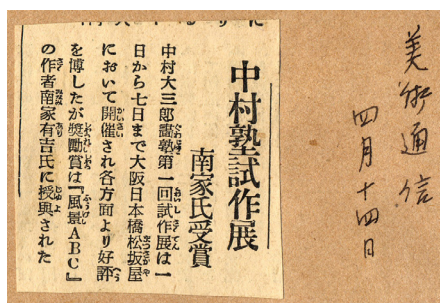 美術通信
四月十四日
中村塾試作展
南家氏受賞
中村大三郎畫塾第一回試作展は一
日から七日まで大阪日本橋松坂屋
において開催され各方面より好評
を博したが奬勵賞は『風景ABC』
の作者南家有吉氏に授與された